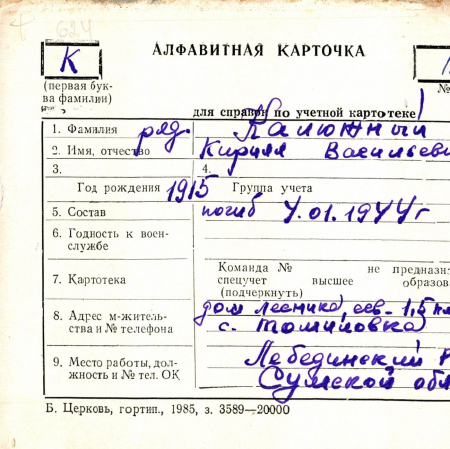 АЛФАВИТНАЯ КАРТОЧКА
К
(первая бук-
ва фамилии)
№
для справок по учетной картотеке
1. Фамилия ряд. Калюжный
2. Имя, отчество Кирилл Васильеви
3. 4.
Год рождения 1915 Группа учета
5. Состав погиб 4.01.1944г
6. Годность к воен-
службе
7. Картотека
Команда № не предназн
спецучет высшее образов
(подчеркнуть)
8. Адрес м-житель-
ства и № телефона
дом лесника, сев. 1,5 км
с. Томиловка
9. Место работы, дол-
жность и № тел. ОК
Лебединский р
Сумской обл
Б. Церковь, гортип., 1985, з. 3589—20000